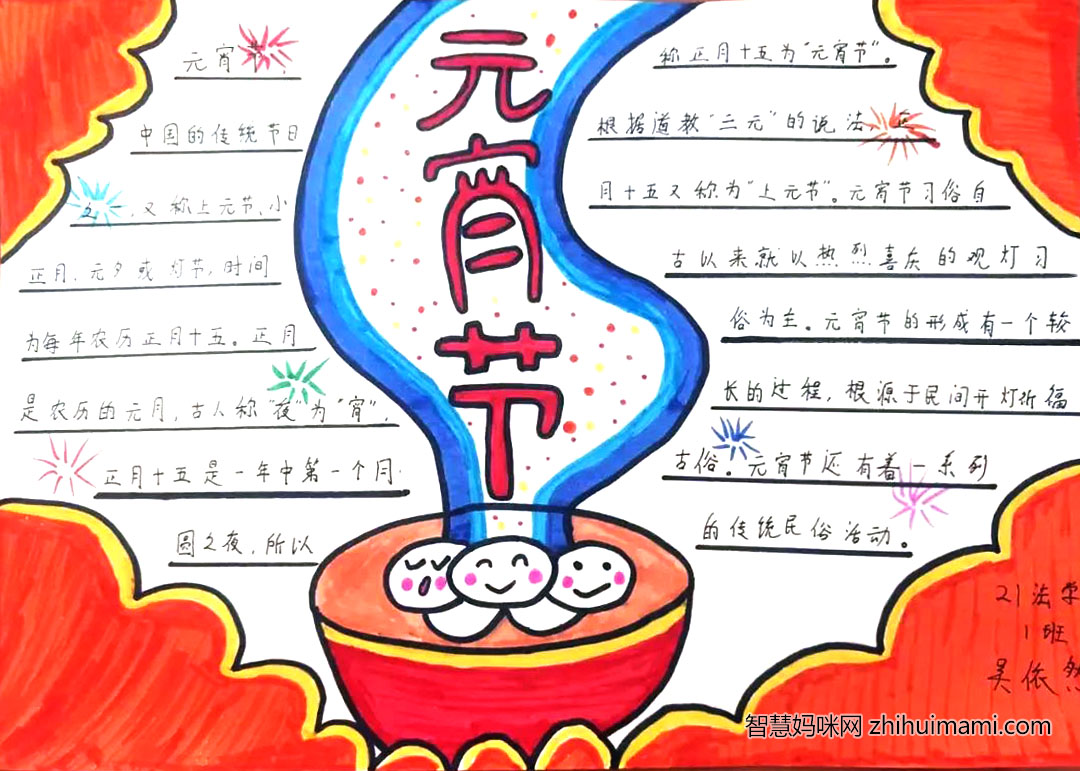 元宵节
元宵节,
中国的传统节日
之一,又称上元节、小
正月、元夕或灯节,时间
为每年农历正月十五。正月
是农历的元月,古人称"夜"为"宵",
正月十五是一年中第一个月
圆之夜,所以
称正月十五为"元宵节"。
根据道教"三元"的说法,正
月十五又称为"上元节"。元宵节习俗自
古以来就以热烈喜庆的观灯习
俗为主。元宵节的形成有一个较
长的过程,根源于民间开灯祈福
古俗。元宵节还有着一系列
的传统民俗活动。
21法学
1班
吴依然
智慧妈咪网 zhihuimami.com